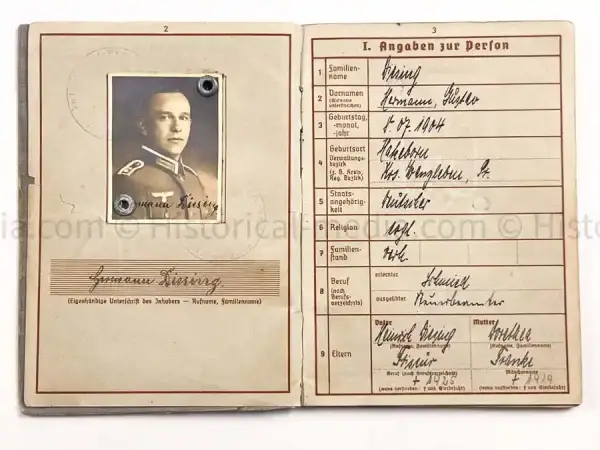 2
Hermann Diesing
Hermann Diesing.
(Eigenhändige Unterschrift des Inhabers — Rufname, Familienname)
3
I. Angaben zur Person
1 Familien-
name
Diesing
2 Vornamen
(Rufname
unterstreichen)
Hermann, Gustav
3 Geburtstag,
-monat,
-jahr
07. 1904
4 Geburtsort
Verwaltungs-
bezirk
(z. B. Kreis,
Reg. Bezirk)
Hakeborn
Krs. Wanzleben, Pr.
5 Staats-
angehörig-
keit
Deutscher
6 Religion
evgl.
7 Familien-
stand
verh.
8 Beruf
(nach
Berufs-
verzeichnis)
erlernter
Schmied
ausgeübter
9 Eltern
Vater
Heinrich Diesing
(Rufname, Familienname)
Friseur
Beruf (nach Berufsverzeichnis)
+ 1925
(wenn verstorben: † und Sterbejahr)
Mutter
Dorothea
(Rufname, Familienname)
Franke
Mädchenname
+ 1929
(wenn verstorben: † und Sterbejahr)
ia.com © Historical-media.com © Histo